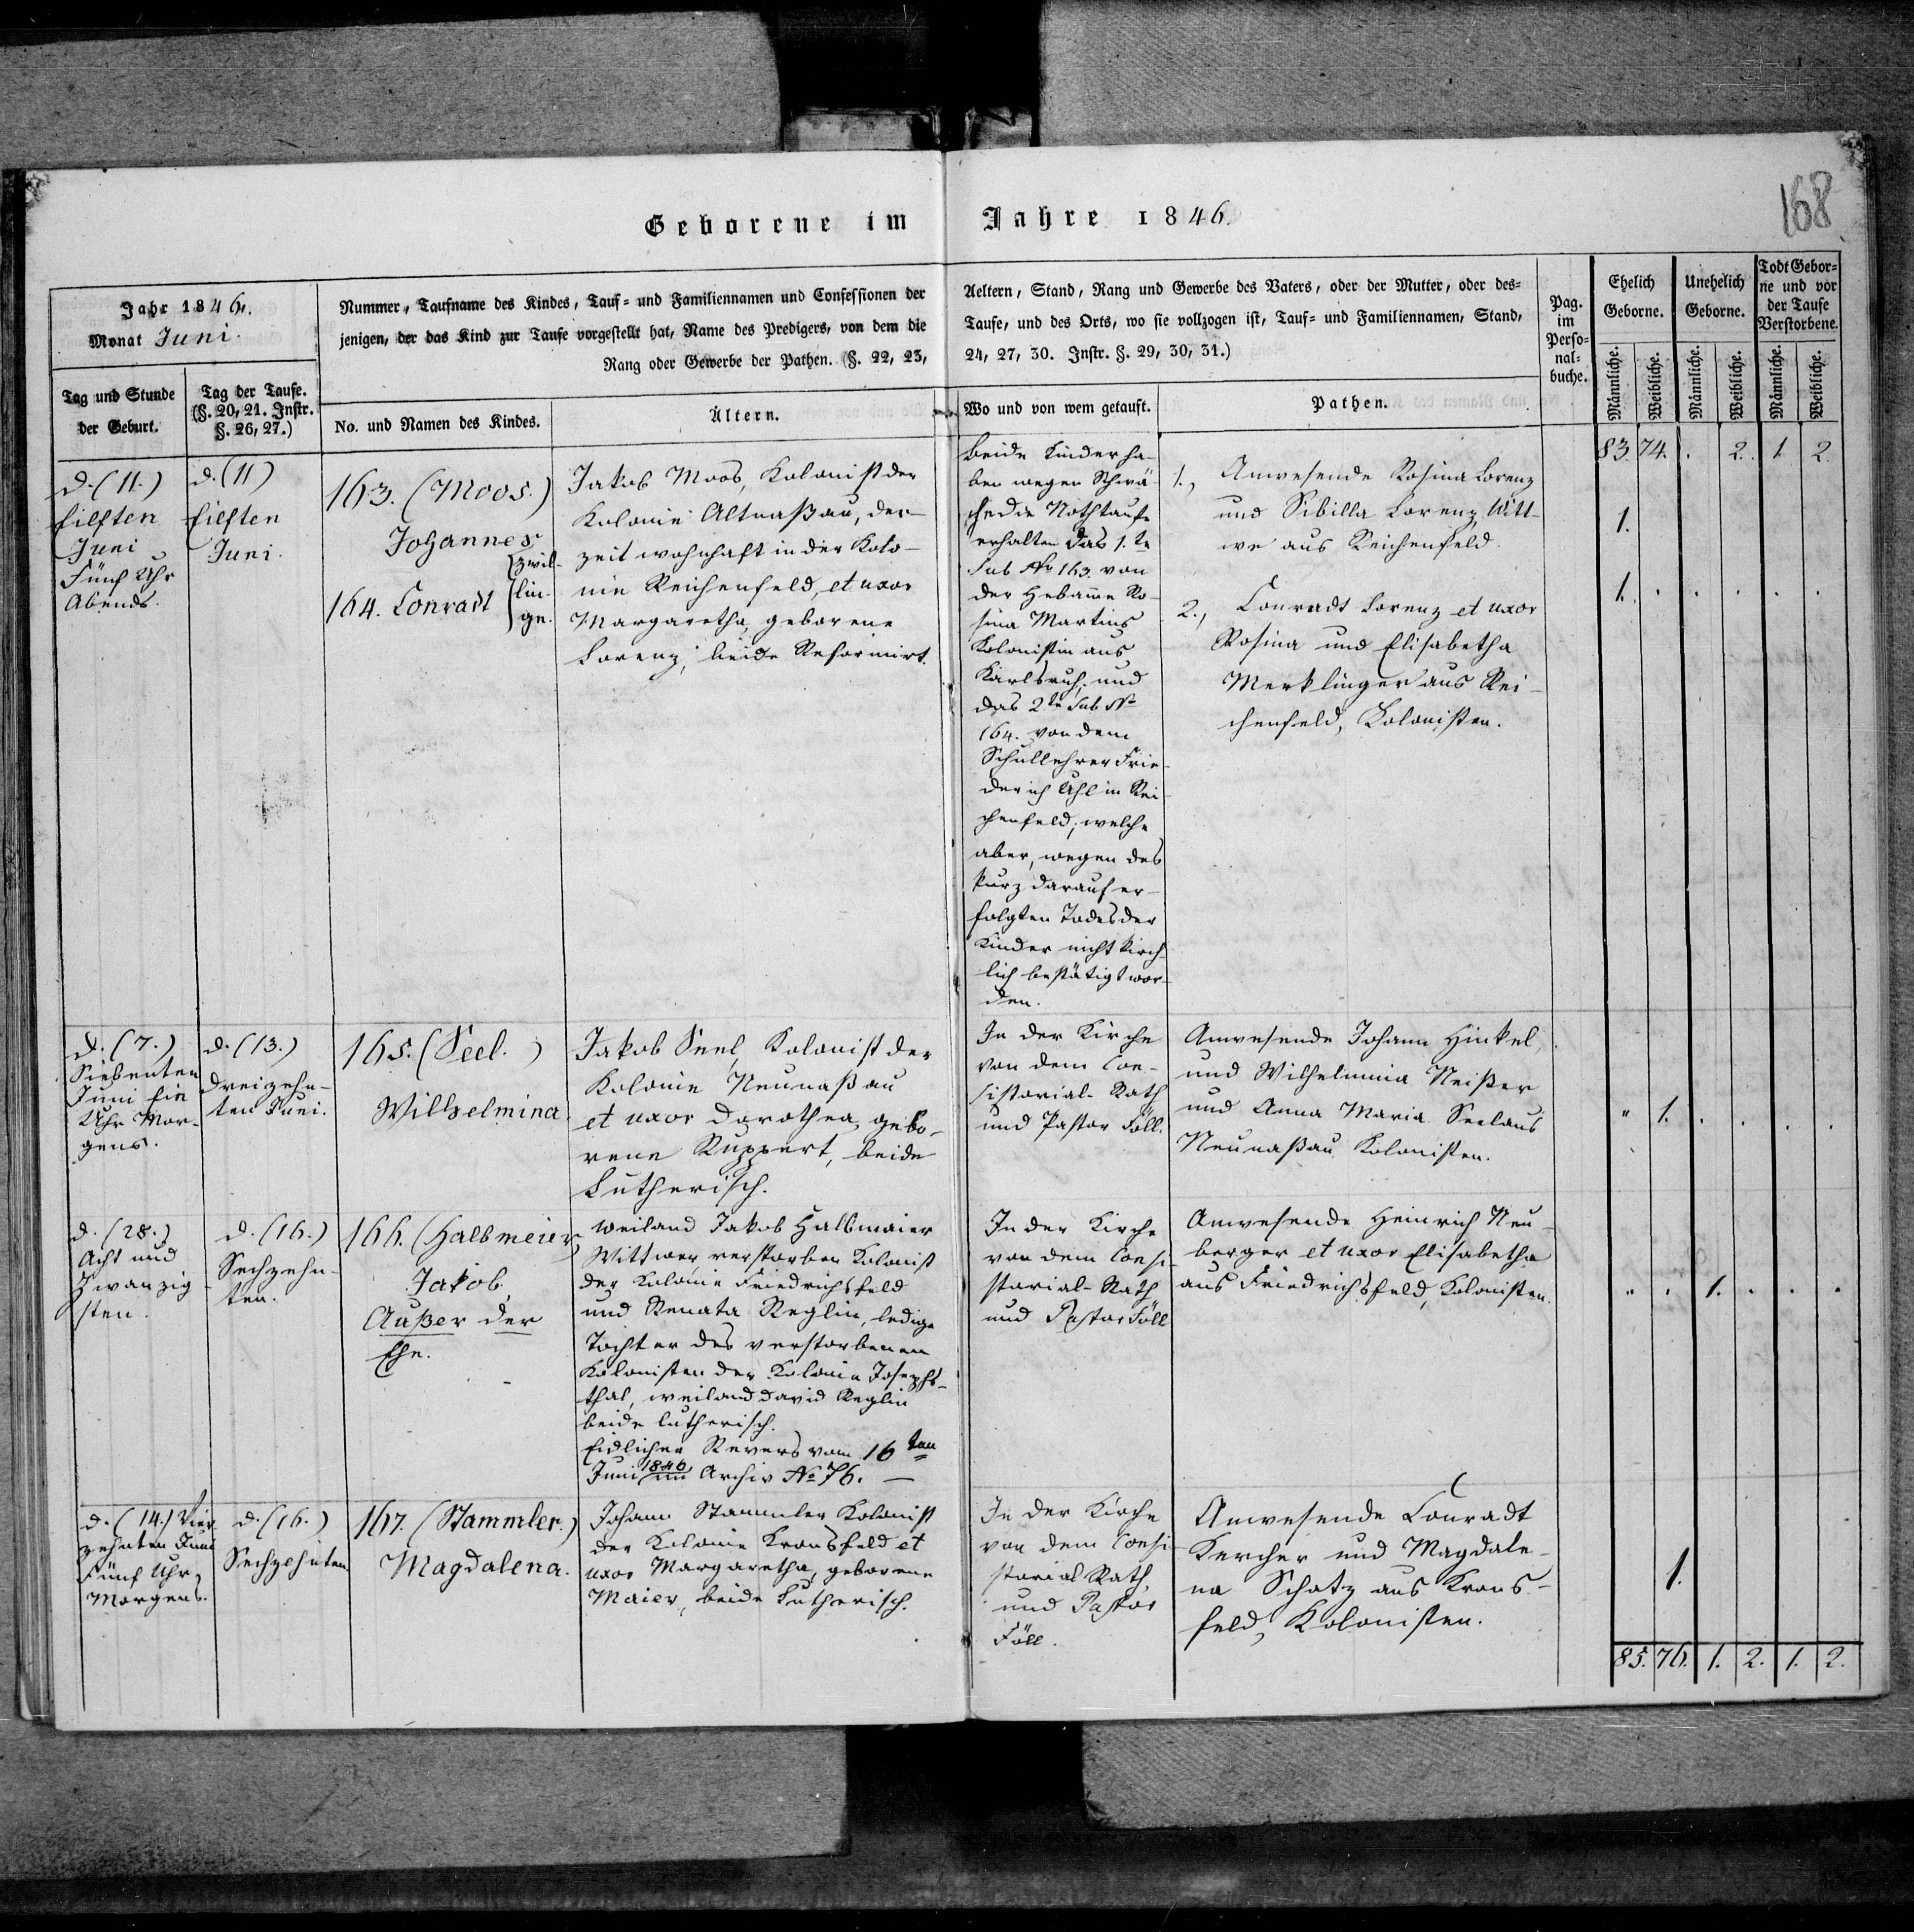 168
Geborene im Jahre 1846.
Jahr 1846.
Monat Juni.
Nummer, Taufname des Kindes, Tauf= und Familiennamen und Confessionen der
jenigen, der das Kind zur Taufe vorgestellt hat, Name des Predigers, von dem die
Rang oder Gewerbe der Pathen. (§. 22, 23,
Aeltern, Stand, Rang und Gewerbe des Vaters, oder der Mutter, oder des=
Taufe, und des Orts, wo sie vollzogen ist, Tauf= und Familiennamen, Stand,
24, 27, 30. Instr. §. 29, 30, 31.)
Pag.
im
Perso=
nal=
buche.
Ehelich
Geborne.
Unehelich
Geborne.
Todt Gebor=
ne und vor
der Taufe
Verstorbene.
Männliche.
Weibliche.
Männliche.
Weibliche.
Männliche.
Weibliche.
Tag und Stunde
der Geburt.
Tag der Taufe.
(§. 20, 21. Instr.
§. 26, 27.)
No. und Namen des Kindes.
Ältern.
Wo und von wem getauft.
Pathen.
83. 74. . 2. 1. 2.
d. (11.)
Eilften
Juni
Fünf Uhr
Abends.
d. (11)
Eilften
Juni.
163. (Moos.)
Johannes
164. Conradt
Zwil-
lin-
ge.
Jakob Moos, Kolonist der
Kolonie Altnaßau, der-
zeit wohnhaft in der Kolo-
nie Reichenfeld, et uxor
Margaretha, geborene
Lorenz, beide Reformirt.
Beide Kinder ha-
ben wegen Schwä-
che die Nothtaufe
erhalten das 1.te
sub No 163. von
der Hebamme Ro-
sina Martins
Kolonistin aus
Karlsruh, und
das 2te sub No
164. von dem
Schullehrer Frie-
derich Uhl in Rei-
chenfeld; welche
aber, wegen des
kurz darauf er-
folgten Todes der
Kinder nicht kirch-
lich bestätigt wor-
den.
1., Anwesende Rosina Lorenz
und Sibilla Lorenz, Witt-
we aus Reichenfeld.
2., Conradt Lorenz et uxor
Rosina und Elisabetha
Merklinger aus Rei-
chenfeld, Kolonisten.
1.
1. . . . . .
d. (7.)
Siebenten
Juni Ein
Uhr Mor-
gens.
d. (13.)
Dreizehn-
ten Juni.
165. (Seel.)
Wilhelmina.
Jakob Seel, Kolonist der
Kolonie Neunaßau
et uxor Dorothea, gebo-
rene Ruppert, beide
Lutherisch.
In der Kirche
von dem Con-
sistorial-Rath
und Pastor Föll.
Anwesende Johann Hinkel,
und Wilhelmina Neißer
und Anna Maria Seel aus
Neunaßau Kolonisten.
" 1. . . . .
d. (28.)
Acht und
Zwanzig-
sten.
d. (16.)
Sechzehn-
ten.
166. (Halbmeier
Jakob,
Außer der
Ehe.
Weiland Jakob Halbmaier
Wittwer verstorben Kolonist
der Kolonie Friedrichsfeld
und Renata Reglin, ledige
Tochter des verstorbenen
Kolonisten der Kolonie Josephs-
thal, weiland David Reglin
beide lutherisch.
Eidlicher Revers vom 16ten
Juni 1846 im Archiv No 76. —
In der Kirche
von dem Consi-
storial-Rath
und Pastor Föll
Anwesende Heinrich Neu-
berger et uxor Elisabetha
aus Friedrichsfeld, Kolonisten.
" . 1. . . .
d. (14.) Vier-
zehnten Juni
Fünf Uhr,
Morgens.
d. (16.)
Sechzehnten
167. (Stammler.)
Magdalena.
Johann Stammler Kolonist
der Kolonie Kronsfeld et
uxor Margaretha, geborene
Maier, beide Lutherisch.
In der Kirche
von dem Consi-
storial Rath,
und Pastor
Föll.
Anwesende Conradt
Kercher und Magdale-
na Schatz aus Krons-
feld, Kolonisten.
1.
85. 76. 1. 2. 1. 2.